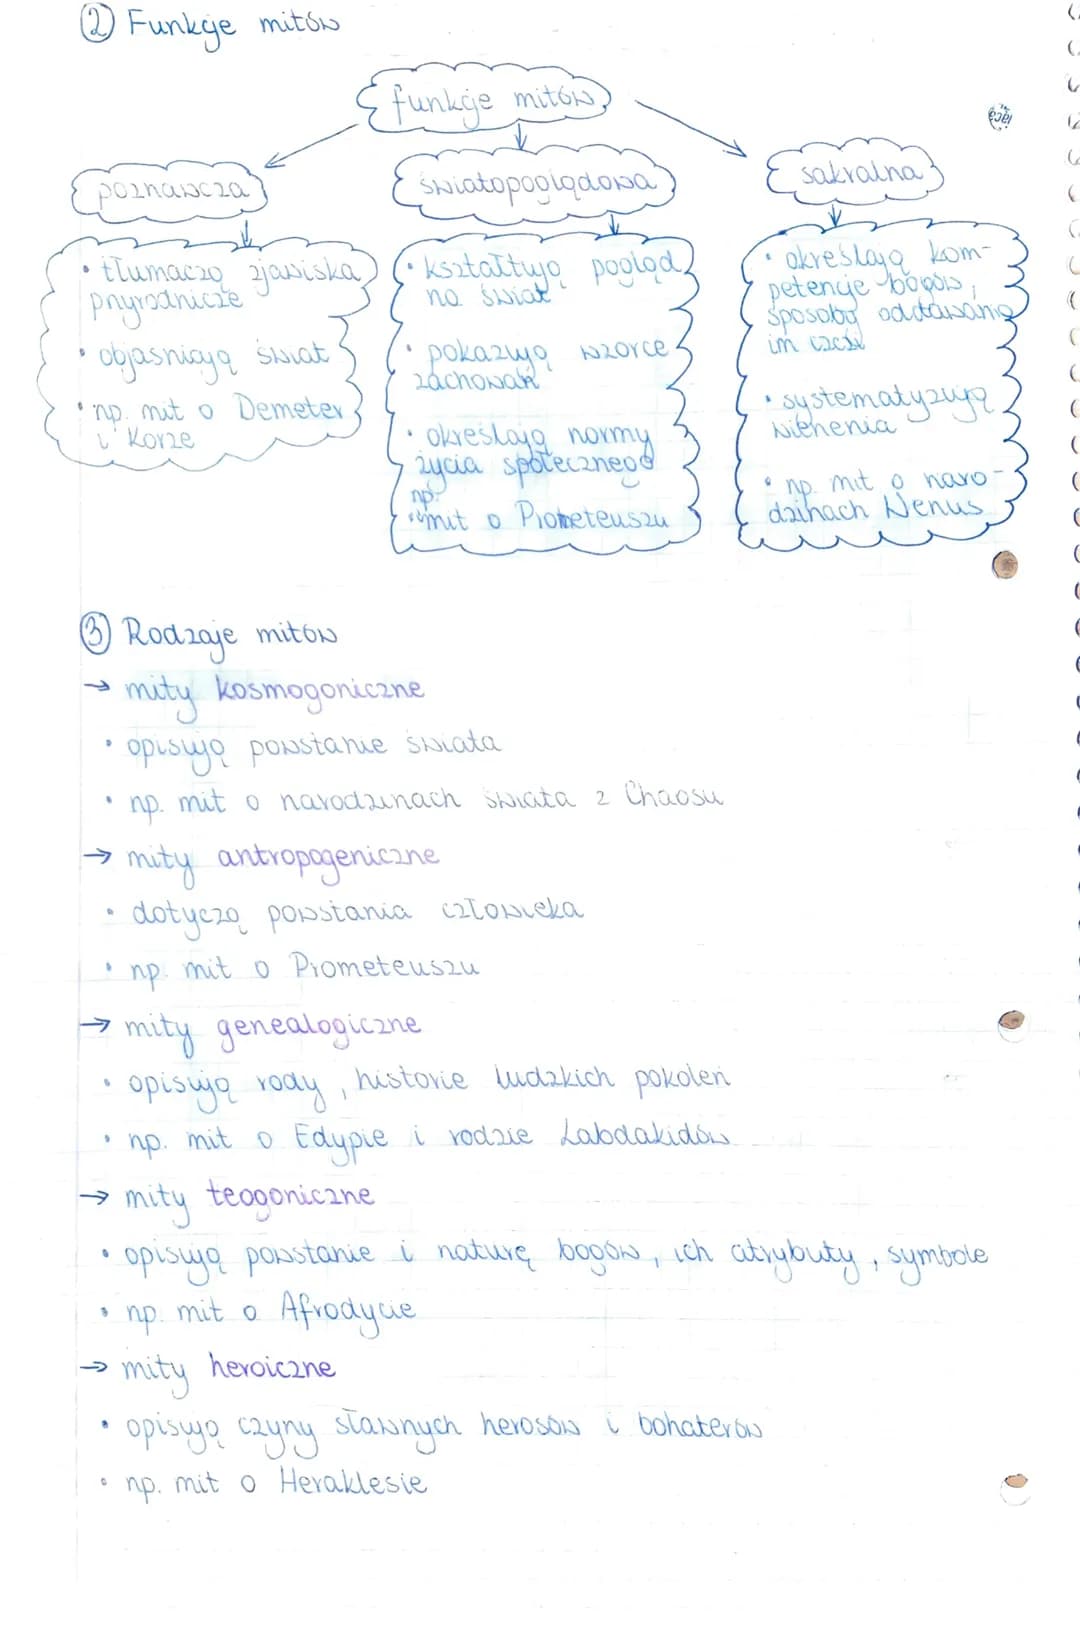 2 Funkcje mitów
funkcje mitów
poznawcza
światopoglądowa
sakralna
• tłumaczą zjawiska
przyrodnicze
• objaśniają świat
• np. mit o Demeter
i Korze
• kształtują pogląd
na świat
• pokazują wzorce
zachowań
• określają normy
życia społecznego
np.
mit o Prometeuszu
• określają kom-
petencje bogów,
sposoby oddawania
im czci
• systematyzują
wierzenia
• np. mit o naro-
dzinach Wenus
3 Rodzaje mitów
→ mity kosmogoniczne
• opisują powstanie świata
• np. mit o narodzinach świata z Chaosu
→ mity antropogeniczne
• dotyczą powstania człowieka
• np. mit o Prometeuszu
→ mity genealogiczne
• opisują rody, historie ludzkich pokoleń
• np. mit o Edypie i rodzie Labdakidów
→ mity teogoniczne
• opisują powstanie i naturę bogów, ich atrybuty, symbole
• np. mit o Afrodycie
→ mity heroiczne
• opisują czyny sławnych herosów i bohaterów
• np. mit o Heraklesie